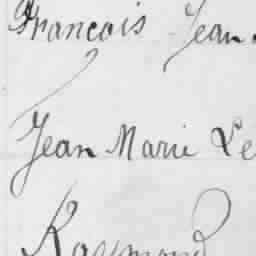 François Jean
Jean Marie Le
Raymond